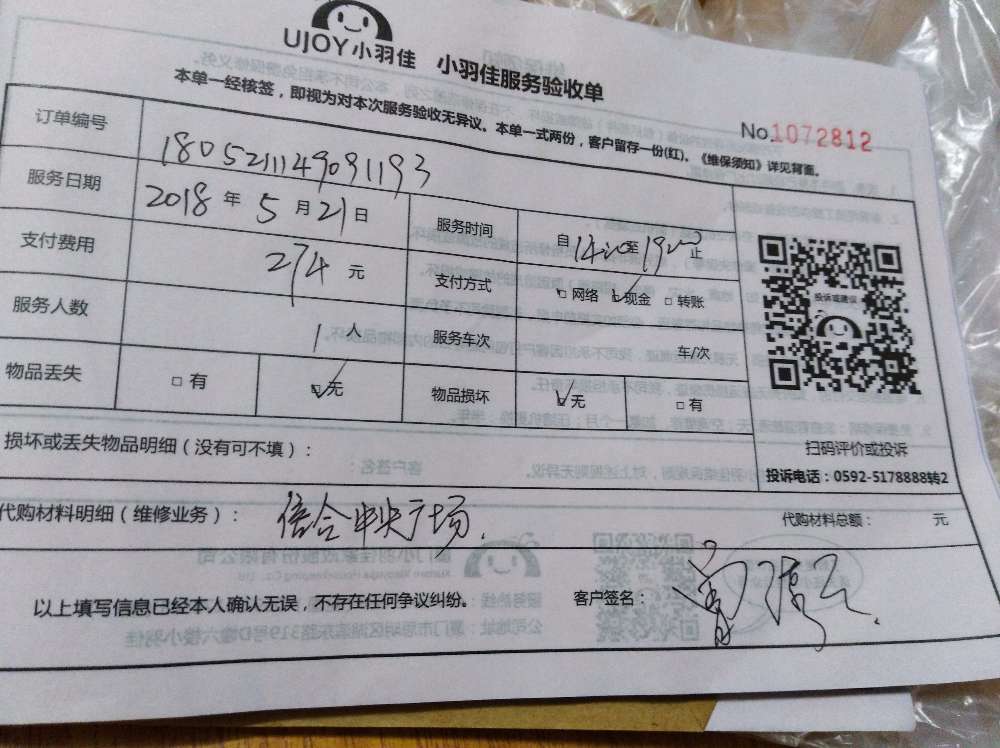 UJOY小羽佳 小羽佳服务验收单
本单一经核签，即视为对本次服务验收无异议。本单一式两份，客户留存一份(红)。《维保须知》详见背面。
No.1072812
订单编号 1805211149091193
服务日期 2018年5月21日 服务时间 自14:00至19:00止
支付费用 274元 支付方式 □网络 ☑现金 □转账
服务人数 1人 服务车次 车/次
物品丢失 □有 ☑无 物品损坏 ☑无 □有
投诉或建议
扫码评价或投诉
投诉电话：0592-5178888转2
损坏或丢失物品明细（没有可不填）：
代购材料明细（维修业务）： 信合中央广场. 代购材料总额： 元
以上填写信息已经本人确认无误，不存在任何争议纠纷。 客户签名：